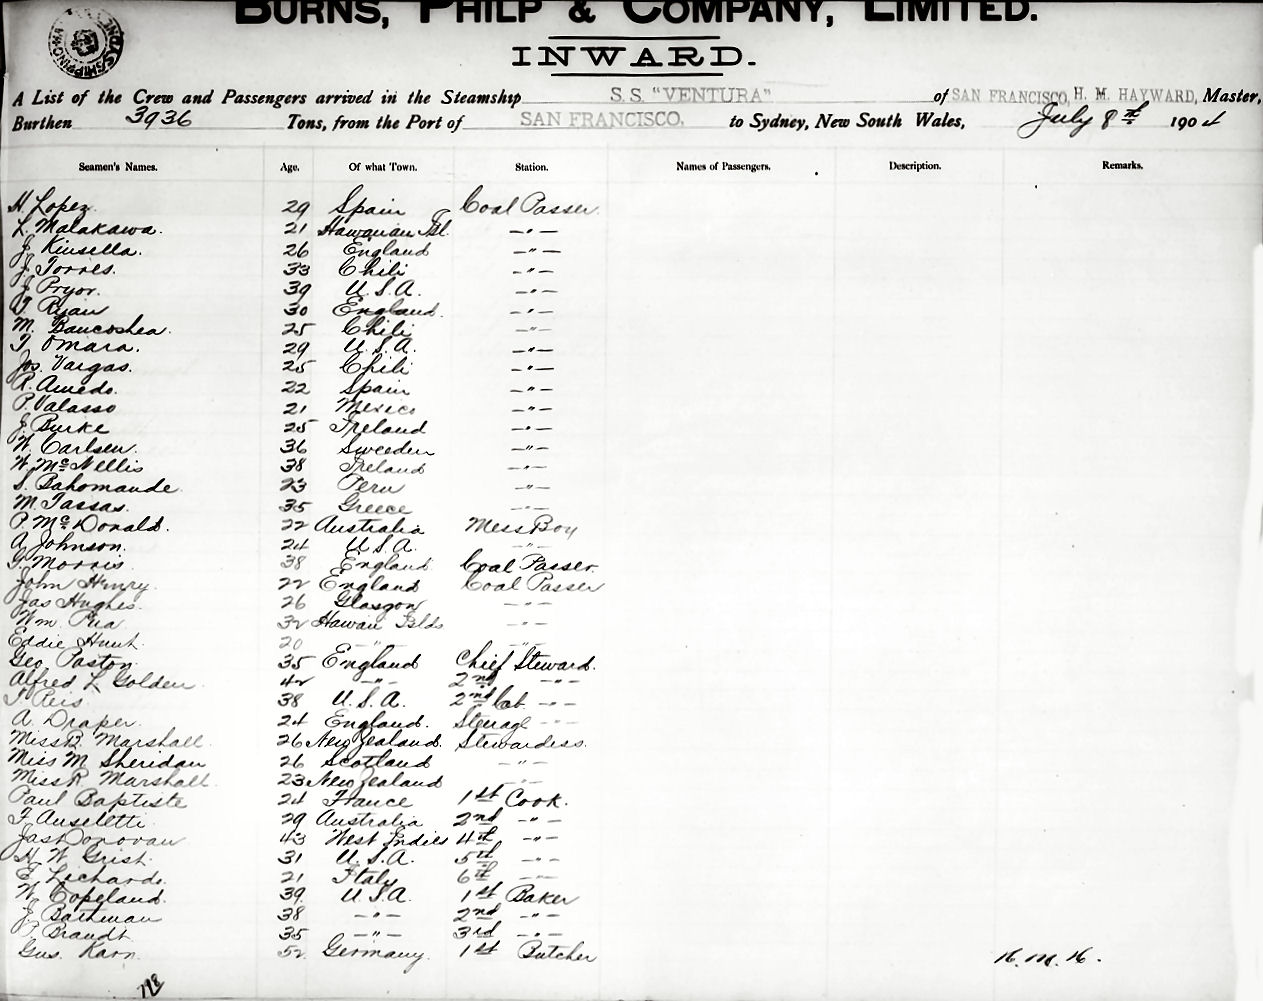 BURNS, PHILP & COMPANY, LIMITED.
INWARD.
A List of the Crew and Passengers arrived in the Steamship S.S. "VENTURA" of SAN FRANCISCO, H. M. HAYWARD, Master,
Burthen 3936 Tons, from the Port of SAN FRANCISCO. to Sydney, New South Wales, July 8th 1904
Seamen's Names. Age. Of what Town. Station. Names of Passengers. Description. Remarks.
H. Lopez. 29 Spain Coal Passer.
L. Malakawa. 21 Hawaiian Isl. -"-
J. Kinsella. 26 England -"-
J. Torres. 33 Chili -"-
J. Pryor. 39 U.S.A. -"-
Ryan 30 England. -"-
M. Bancoshea. 25 Chili -"-
T. Omara. 29 U.S.A. -"-
Jos. Vargas. 25 Chili -"-
R. Amedo. 22 Spain -"-
P. Valasso 21 Mexico -"-
J. Burke 25 Ireland -"-
W. Carlsen. 36 Sweeden -"-
W. McNellis 38 Ireland -"-
S. Bahomande. 23 Peru -"-
M. Tassas. 35 Greece -"-
P. McDonald. 22 Australia Mess Boy
A. Johnson. 24 U.S.A. -"-
Morris 38 England Coal Passer.
John Henry. 22 England Coal Passer
Jas Hughes. 26 Glasgow -"-
Wm. Pua 32 Hawaii Islds -"-
Eddie Hunt. 20 -"- -"-
Geo. Paston. 35 England Chief Steward.
Alfred L Golden. 42 -"- 2nd -"-
Reis. 38 U.S.A. 2nd Cab -"-
A. Draper. 24 England. Sterage -"-
Miss B. Marshall. 26 New Zealand. Stewardess.
Miss M. Sheridan 26 Scotland -"-
Miss R. Marshall. 23 New Zealand -"-
Paul Baptiste 24 France 1st Cook.
F. Anseletti. 29 Australia 2nd -"-
Jas Donovan 43 West Indies 4th -"-
H. W. Grist. 31 U.S.A. 5th -"-
E. Lechardi. 21 Italy 6th -"-
W. Copeland. 39 U.S.A. 1st Baker
J. Bathman 38 -"- 2nd -"-
Brandt. 35 -"- 3rd -"-
Gus. Karn. 52 Germany. 1st Butcher